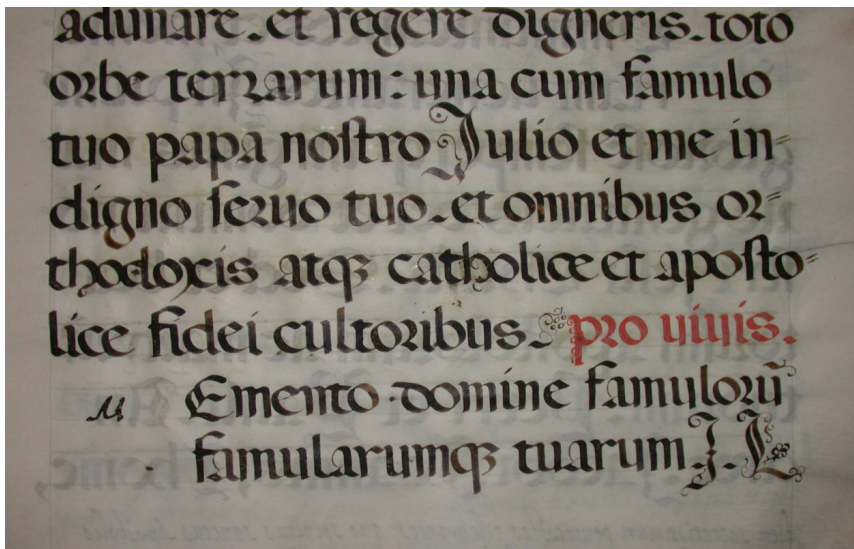 adunare. et regere digneris. toto
orbe terrarum: una cum famulo
tuo papa nostro Julio et me in=
digno seruo tuo. et omnibus or=
thodoxis atqꝫ catholice et aposto=
lice fidei cultoribus. pro uiuis.
M Emento domine famuloru᷉
famularumqꝫ tuarum. J. L